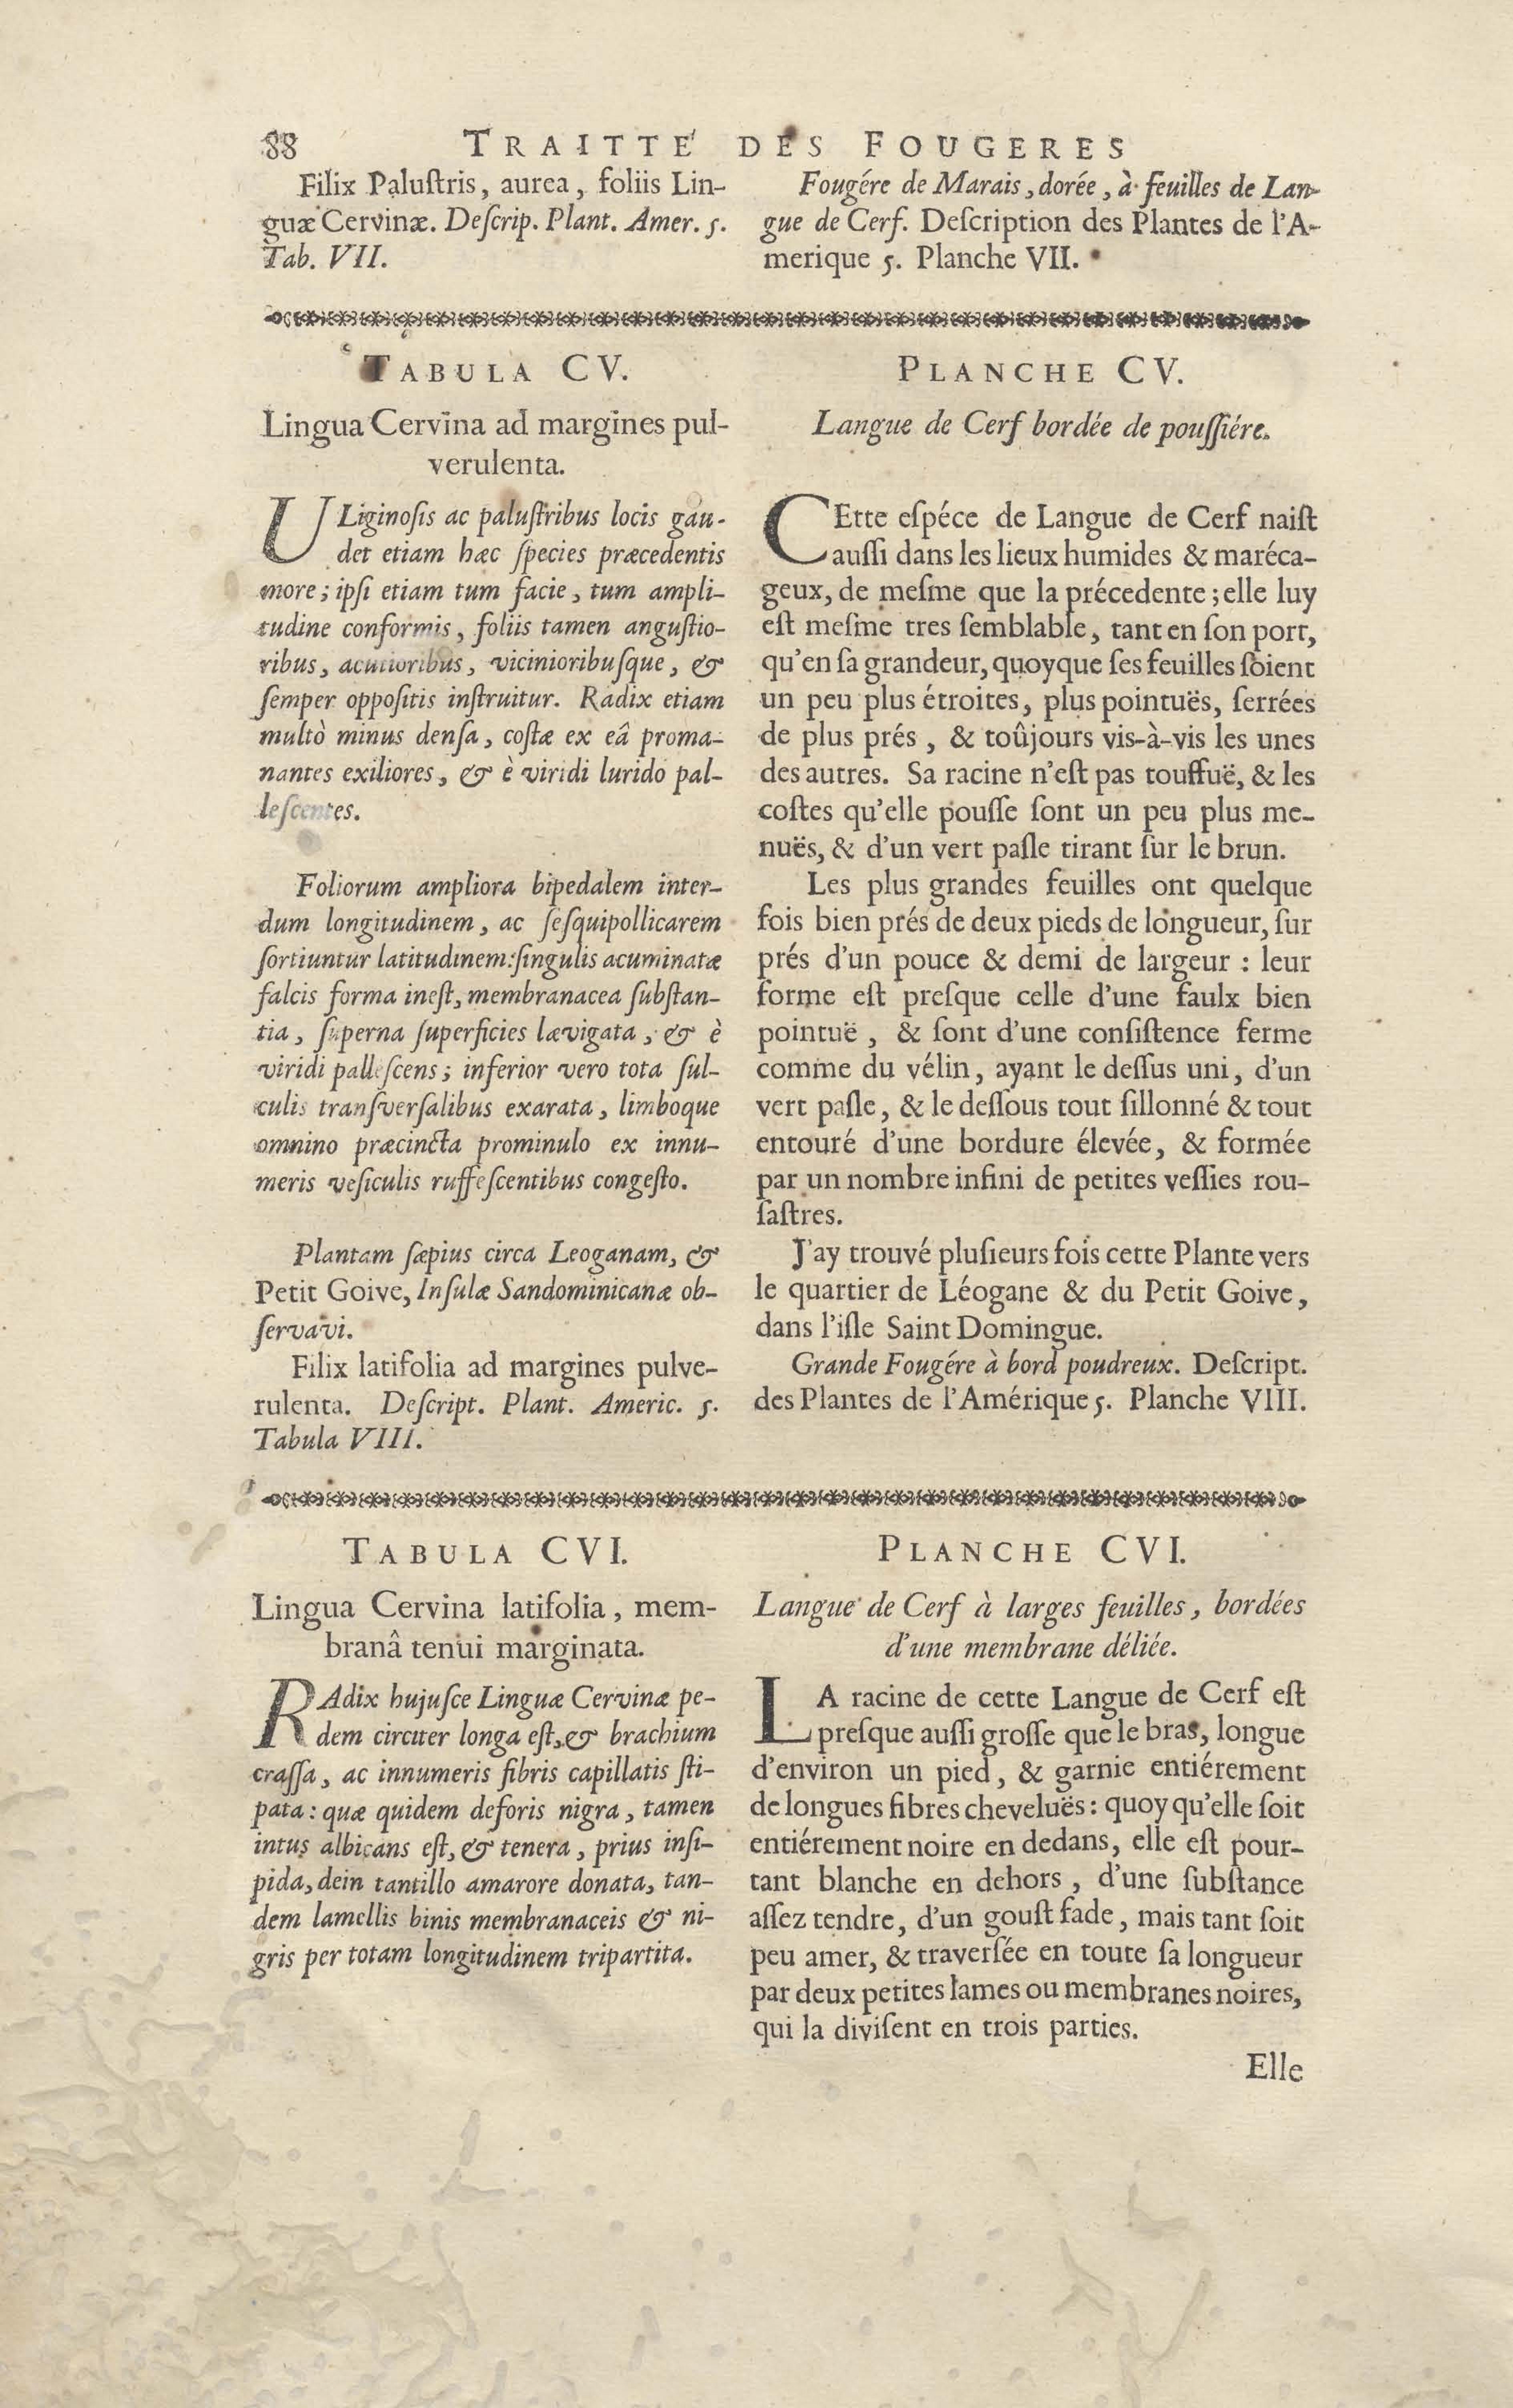 88 TRAITTE' DES FOUGERES
Filix Paluſtris, aurea, foliis Lin-
guæ Cervinæ. Deſcrip. Plant. Amer. 5.
Tab. VII.
Fougére de Marais, dorée, à feuilles de Lan-
gue de Cerf. Deſcription des Plantes de l'A-
merique 5. Planche VII.
TABULA CV.
Lingua Cervina ad margines pul-
verulenta.
ULiginoſis ac paluſtribus locis gau-
det etiam hæc ſpecies præcedentis
more; ipſi etiam tum facie, tum ampli-
tudine conformis, foliis tamen anguſtio-
ribus, acutioribus, vicinioribuſque, &
ſemper oppoſitis inſtruitur. Radix etiam
multò minus denſa, coſtæ ex eâ proma-
nantes exiliores, & è viridi lurido pal-
leſcentes.
Foliorum ampliora bipedalem inter-
dum longitudinem, ac ſeſquipollicarem
ſortiuntur latitudinem: ſingulis acuminatæ
falcis forma ineſt, membranacea ſubſtan-
tia, ſuperna ſuperficies lævigata, & è
viridi palleſcens; inferior vero tota ſul-
culis tranſverſalibus exarata, limboque
omnino præcincta prominulo ex innu-
meris veſiculis ruffeſcentibus congeſto.
Plantam ſæpius circa Leoganam, &
Petit Goive, Inſulæ Sandominicanæ ob-
ſervavi.
Filix latifolia ad margines pulve-
rulenta. Deſcript. Plant. Americ. 5.
Tabula VIII.
PLANCHE CV.
Langue de Cerf bordée de pouſſiére.
CEtte eſpéce de Langue de Cerf naiſt
auſſi dans les lieux humides & maréca-
geux, de meſme que la précedente; elle luy
eſt meſme tres ſemblable, tant en ſon port,
qu'en ſa grandeur, quoyque ſes feuilles ſoient
un peu plus étroites, plus pointuës, ſerrées
de plus prés, & toûjours vis-à-vis les unes
des autres. Sa racine n'eſt pas touffuë, & les
coſtes qu'elle pouſſe ſont un peu plus me-
nuës, & d'un vert paſle tirant ſur le brun.
Les plus grandes feuilles ont quelque
fois bien prés de deux pieds de longueur, ſur
prés d'un pouce & demi de largeur : leur
forme eſt preſque celle d'une faulx bien
pointuë, & ſont d'une conſiſtence ferme
comme du vélin, ayant le deſſus uni, d'un
vert paſle, & le deſſous tout ſillonné & tout
entouré d'une bordure élevée, & formée
par un nombre infini de petites veſſies rou-
ſaſtres.
J'ay trouvé pluſieurs fois cette Plante vers
le quartier de Léogane & du Petit Goive,
dans l'iſle Saint Domingue.
Grande Fougére à bord poudreux. Deſcript.
des Plantes de l'Amérique 5. Planche VIII.
TABULA CVI.
Lingua Cervina latifolia, mem-
branâ tenui marginata.
RAdix hujuſce Linguæ Cervinæ pe-
dem circiter longa eſt, & brachium
craſſa, ac innumeris fibris capillatis ſti-
pata : quæ quidem deforis nigra, tamen
intus albicans eſt, & tenera, prius inſi-
pida, dein tantillo amarore donata, tan-
dem lamellis binis membranaceis & ni-
gris per totam longitudinem tripartita.
PLANCHE CVI.
Langue de Cerf à larges feuilles, bordées
d'une membrane déliée.
LA racine de cette Langue de Cerf eſt
preſque auſſi groſſe que le bras, longue
d'environ un pied, & garnie entiérement
de longues fibres cheveluës : quoy qu'elle ſoit
entiérement noire en dedans, elle eſt pour-
tant blanche en dehors, d'une ſubſtance
aſſez tendre, d'un gouſt fade, mais tant ſoit
peu amer, & traverſée en toute ſa longueur
par deux petites lames ou membranes noires,
qui la diviſent en trois parties.
Elle